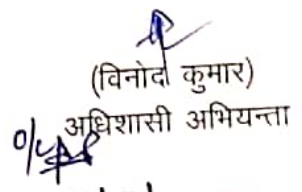 (विनोद कुमार)
अधिशासी अभियन्ता